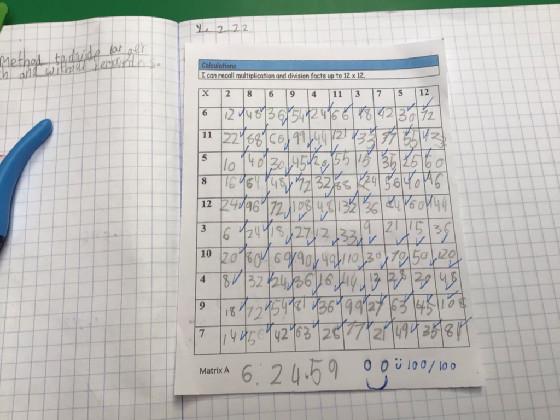 4. 2. 22
Method to divide
and without remainders.
Calculations
I can recall multiplication and division facts up to 12 x 12.
X 2 8 6 9 4 11 3 7 5 12
6 12 48 36 54 24 66 18 42 30 72
11 22 88 66 99 44 121 33 77 55
5 10 40 30 45 20 55 15 35 25 60
8 16 64 48 72 32 88 24 56 40 96
12 24 96 72 108 48 132 36 84 60 144
3 6 24 18 27 12 33 9 21 15 36
10 20 80 60 90 40 110 30 70 50 120
4 8 32 24 36 16 44 12 28 20 48
9 18 72 54 81 36 99 27 63 45 108
7 14 56 42 63 28 77 21 49 35 84
Matrix A 6:24.59 100/100